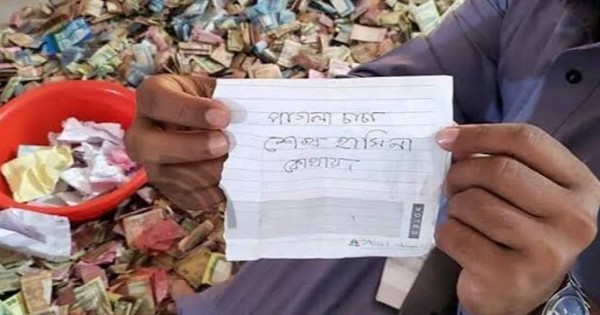 পাগলা চাচা
শেখ হাসিনা
কোথায়
NOTES